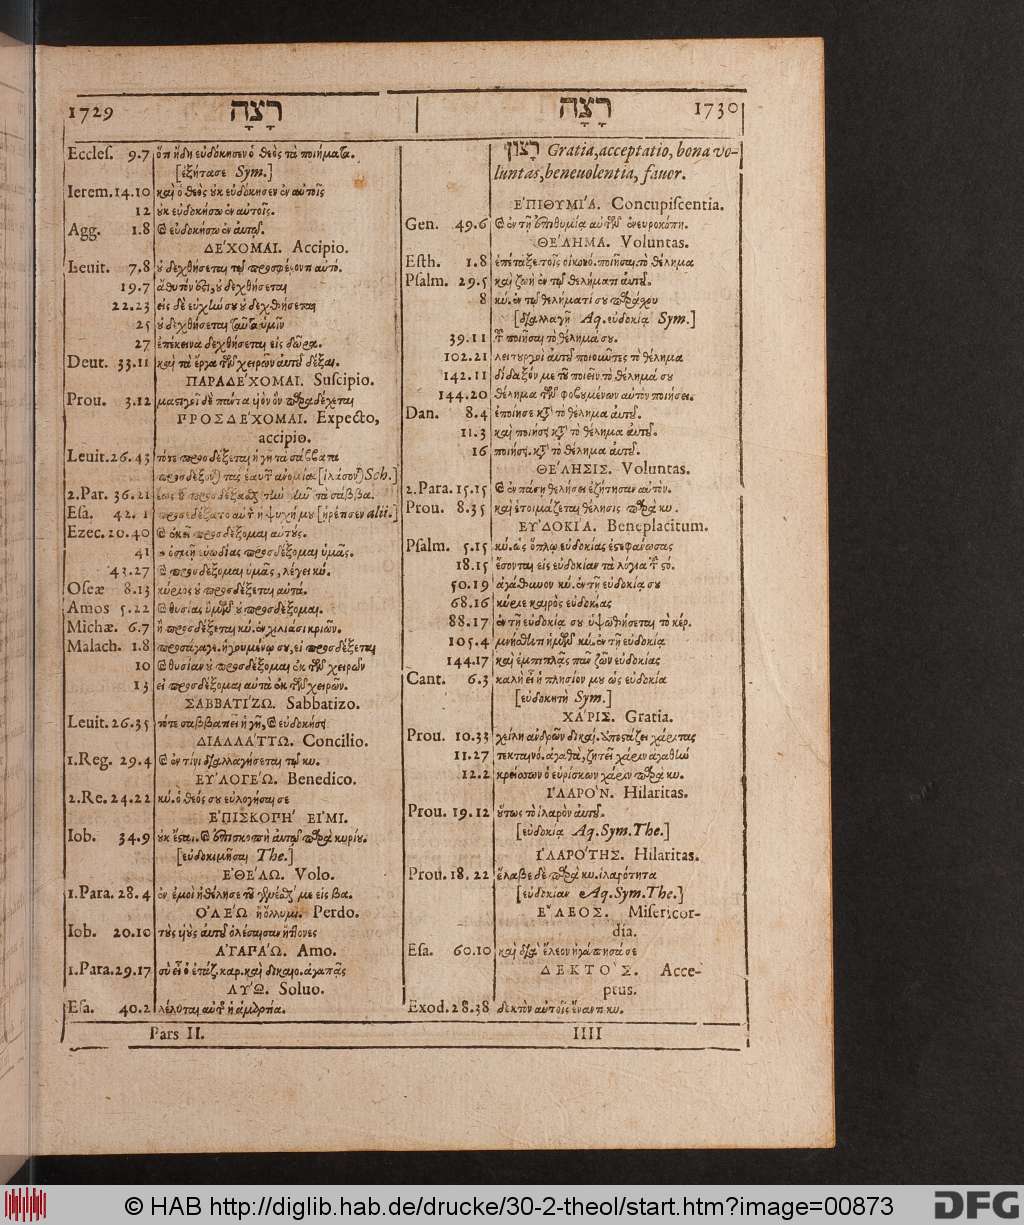 1729 רָצָה
Eccles. 9.7 ὅτι ἤδη εὐδόκησεν ὁ θεὸς τὰ ποιήματα.
[ἐξήτασε Sym.]
Ierem. 14.10 καὶ ὁ θεὸς οὐκ εὐδόκησεν ἐν αὐτοῖς
12 οὐκ εὐδοκήσω ἐν αὐτοῖς.
Agg. 1.8 καὶ εὐδοκήσω ἐν αὐτῷ.
ΔΕ΄ΧΟΜΑΙ. Accipio.
Leuit. 7.8 οὐ δεχθήσεται τῷ προσφέροντι αὐτό.
19.7 ἄθυτόν ἐστι, οὐ δεχθήσεται
22.23 εἰς δὲ εὐχήν σου οὐ δεχθήσεται
25 οὐ δεχθήσεται ταῦτα ὑμῖν
27 ἐπέκεινα δεχθήσεται εἰς δῶρα.
Deut. 33.11 καὶ τὰ ἔργα τῶν χειρῶν αὐτοῦ δέξαι.
ΠΑΡΑΔΕ΄ΧΟΜΑΙ. Suscipio.
Prou. 3.12 μαστιγοῖ δὲ πάντα υἱὸν ὃν παραδέχεται
ΠΡΟΣΔΕ΄ΧΟΜΑΙ. Expecto,
accipio.
Leuit. 26.43 τότε προσδέξεται ἡ γῆ τὰ σάββατα
τὰς ἑαυτῶν ἀνομίας [ἱλάσονται Sch.]
2.Par. 36.21 ἕως τοῦ προσδέξασθαι τὴν γῆν τὰ σάββα.
Esa. 42.1 προσεδέξατο αὐτὸν ἡ ψυχή μου [ἠρέπσεν alii.]
Ezec. 20.40 καὶ ἐκεῖ προσδέξομαι αὐτούς.
41 ἐν ὀσμῇ εὐωδίας προσδέξομαι ὑμᾶς.
43.27 καὶ προσδέξομαι ὑμᾶς, λέγει κύ.
Oseæ 8.13 κύριος οὐ προσδέξεται αὐτά.
Amos 5.22 καὶ θυσίας ὑμῶν οὐ προσδέξομαι.
Michæ. 6.7 ἢ προσδέξεται κύ. ἐν χιλιάσι κριῶν.
Malach. 1.8 προσάγαγε. ἡγουμένῳ σου, εἰ προσδέξεται
10 καὶ θυσίαν οὐ προσδέξομαι ἐκ τῶν χειρῶν
13 εἰ προσδέξομαι αὐτὰ ἐκ τῶν χειρῶν.
ΣΑΒΒΑΤΙ΄ΖΩ. Sabbatizo.
Leuit. 26.35 τότε σαββατιεῖ ἡ γῆ, καὶ εὐδοκήσει
ΔΙΑΛΛΑ΄ΤΤΩ. Concilio.
1.Reg. 29.4 καὶ ἐν τίνι διαλλαγήσεται τῷ κυ.
ΕΥ᾿ΛΟΓΕ΄Ω. Benedico.
2.Re. 24.22 κύ. ὁ θεός σου εὐλογήσαι σε
Ε᾿ΠΙΣΚΟΠΗ΄ ΕΙ᾿ΜΙ.
Iob. 34.9 οὐκ ἔσται. καὶ ἐπισκοπὴ αὐτῷ παρὰ κυρίου.
[εὐδοκιμῆσαι The.]
Ε᾿ΘΕ΄ΛΩ. Volo.
1.Para. 28.4 ἐν ἐμοὶ ἠθέλησε τοῦ γενέσθαι με εἰς βα.
Ο᾿ΛΕ΄Ω ἢ ὄλλυμι. Perdo.
Iob. 20.10 τοὺς υἱοὺς αὐτοῦ ὀλέσαισαν ἥττονες
Α᾿ΓΑΠΑ΄Ω. Amo.
1.Para. 29.17 σὺ εἶ ὁ ἐτάζ. καρ. καὶ δικαιο. ἀγαπᾷς
ΛΥ΄Ω. Soluo.
Esa. 40.2 λέλυται αὐτῆς ἡ ἁμαρτία.
Pars II.
רָצָה 1730
רָצוֹן Gratia, acceptatio, bona vo-
luntas, beneuolentia, fauor.
Ε᾿ΠΙΘΥΜΙ΄Α. Concupiscentia.
Gen. 49.6 καὶ ἐν τῇ ἐπιθυμίᾳ αὐτῶν ἐνευροκόπη.
ΘΕ΄ΛΗΜΑ. Voluntas.
Esth. 1.8 ἐπέταξε τοῖς οἰκονό. ποιῆσαι τὸ θέλημα
Psalm. 29.5 καὶ ζωὴ ἐν τῷ θελήματι αὐτοῦ.
8 κύ. ἐν τῷ θελήματί σου παράσχου
[διαλλαγῇ Aq. εὐδοκίᾳ Sym.]
39.11 τοῦ ποιῆσαι τὸ θέλημα σου.
102.21 λειτουργοὶ αὐτοῦ ποιοῦντες τὸ θέλημα
142.11 δίδαξόν με τοῦ ποιεῖν τὸ θέλημά σου
144.20 θέλημα τῶν φοβουμένων αὐτὸν ποιήσει.
Dan. 8.4 ἐποίησε κατὰ τὸ θέλημα αὐτοῦ.
11.3 καὶ ποιήσει κατὰ τὸ θέλημα αὐτοῦ.
16 ποιήσει κατὰ τὸ θέλημα αὐτοῦ.
ΘΕ΄ΛΗΣΙΣ. Voluntas.
2.Para. 15.15 καὶ ἐν πάσῃ θελήσει ἐζήτησαν αὐτόν.
Prou. 8.35 καὶ ἑτοιμάζεται θέλησις παρὰ κυ.
ΕΥ᾿ΔΟΚΙ΄Α. Beneplacitum.
Psalm. 5.15 κύ. ὡς ὅπλῳ εὐδοκίας ἐστεφάνωσας
18.15 ἔσονται εἰς εὐδοκίαν τὰ λόγια τοῦ στό.
50.19 ἀγάθυνον κύ. ἐν τῇ εὐδοκίᾳ σου
68.16 κύριε καιρὸς εὐδοκίας
88.17 ἐν τῇ εὐδοκίᾳ σου ὑψωθήσεται τὸ κέρ.
105.4 μνήσθητι ἡμῶν κύ. ἐν τῇ εὐδοκίᾳ
144.17 καὶ ἐμπιπλᾷς πᾶν ζῶον εὐδοκίας
Cant. 6.3 καλὴ εἶ ἡ πλησίον μου ὡς εὐδοκία
[εὐδοκητὴ Sym.]
ΧΑ΄ΡΙΣ. Gratia.
Prou. 10.33 χείλη ἀνδρῶν δικαι. ἀποστάζει χάριτας
11.27 τεκταινό. ἀγαθὰ, ζητεῖ χάριν ἀγαθὴν
12.2 κρείσσων ὁ εὑρίσκων χάριν παρὰ κυ.
Ι῾ΛΑΡΟ΄Ν. Hilaritas.
Prou. 19.12 οὕτως τὸ ἱλαρὸν αὐτοῦ.
[εὐδοκία Aq. Sym. The.]
Ι῾ΛΑΡΟ΄ΤΗΣ. Hilaritas.
Prou. 18.22 ἔλαβε δὲ παρὰ κυ. ἱλαρότητα
[εὐδοκίαν Aq. Sym. The.]
Ε῎ΛΕΟΣ. Misericor-
dia.
Esa. 60.10 καὶ διὰ ἔλεον ἠγάπησά σε
ΔΕΚΤΟ΄Σ. Acce-
ptus.
Exod. 28.38 δεκτὸν αὐτοῖς ἔναντι κυ.
IIII
© HAB http://diglib.hab.de/drucke/30-2-theol/start.htm?image=00873
DFG